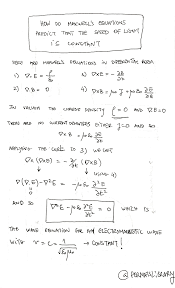 HOW DO MAXWELL'S EQUATIONS
PREDICT THAT THE SPEED OF LIGHT
IS CONSTANT
HERE ARE MAXWELL'S EQUATIONS IN DIFFERENTIAL FORM
1) ∇·E = ρ/ε₀ 3) ∇×E = -∂B/∂t
2) ∇·B = 0 4) ∇×B = μ₀J + μ₀ε₀ ∂E/∂t
IN VACUUM THE CHARGE DENSITY ρ = 0 AND ∇·E=0
THERE ARE NO CURRENT DENSITIES EITHER J=0 AND SO
∇×B = μ₀ε₀ ∂E/∂t
APPLYING THE CURL TO 3) WE GET
∇×(∇×E) = -∂/∂t (∇×B)
↓ USING 4)
∇(∇·E)-∇²E = -μ₀ε₀ ∂²E/∂t²
AND SO ∇²E - μ₀ε₀ ∂²E/∂t² = 0 WHICH IS
THE WAVE EQUATION FOR AN ELECTROMAGNETIC WAVE
WITH v = c = 1/√(ε₀μ₀) → CONSTANT!